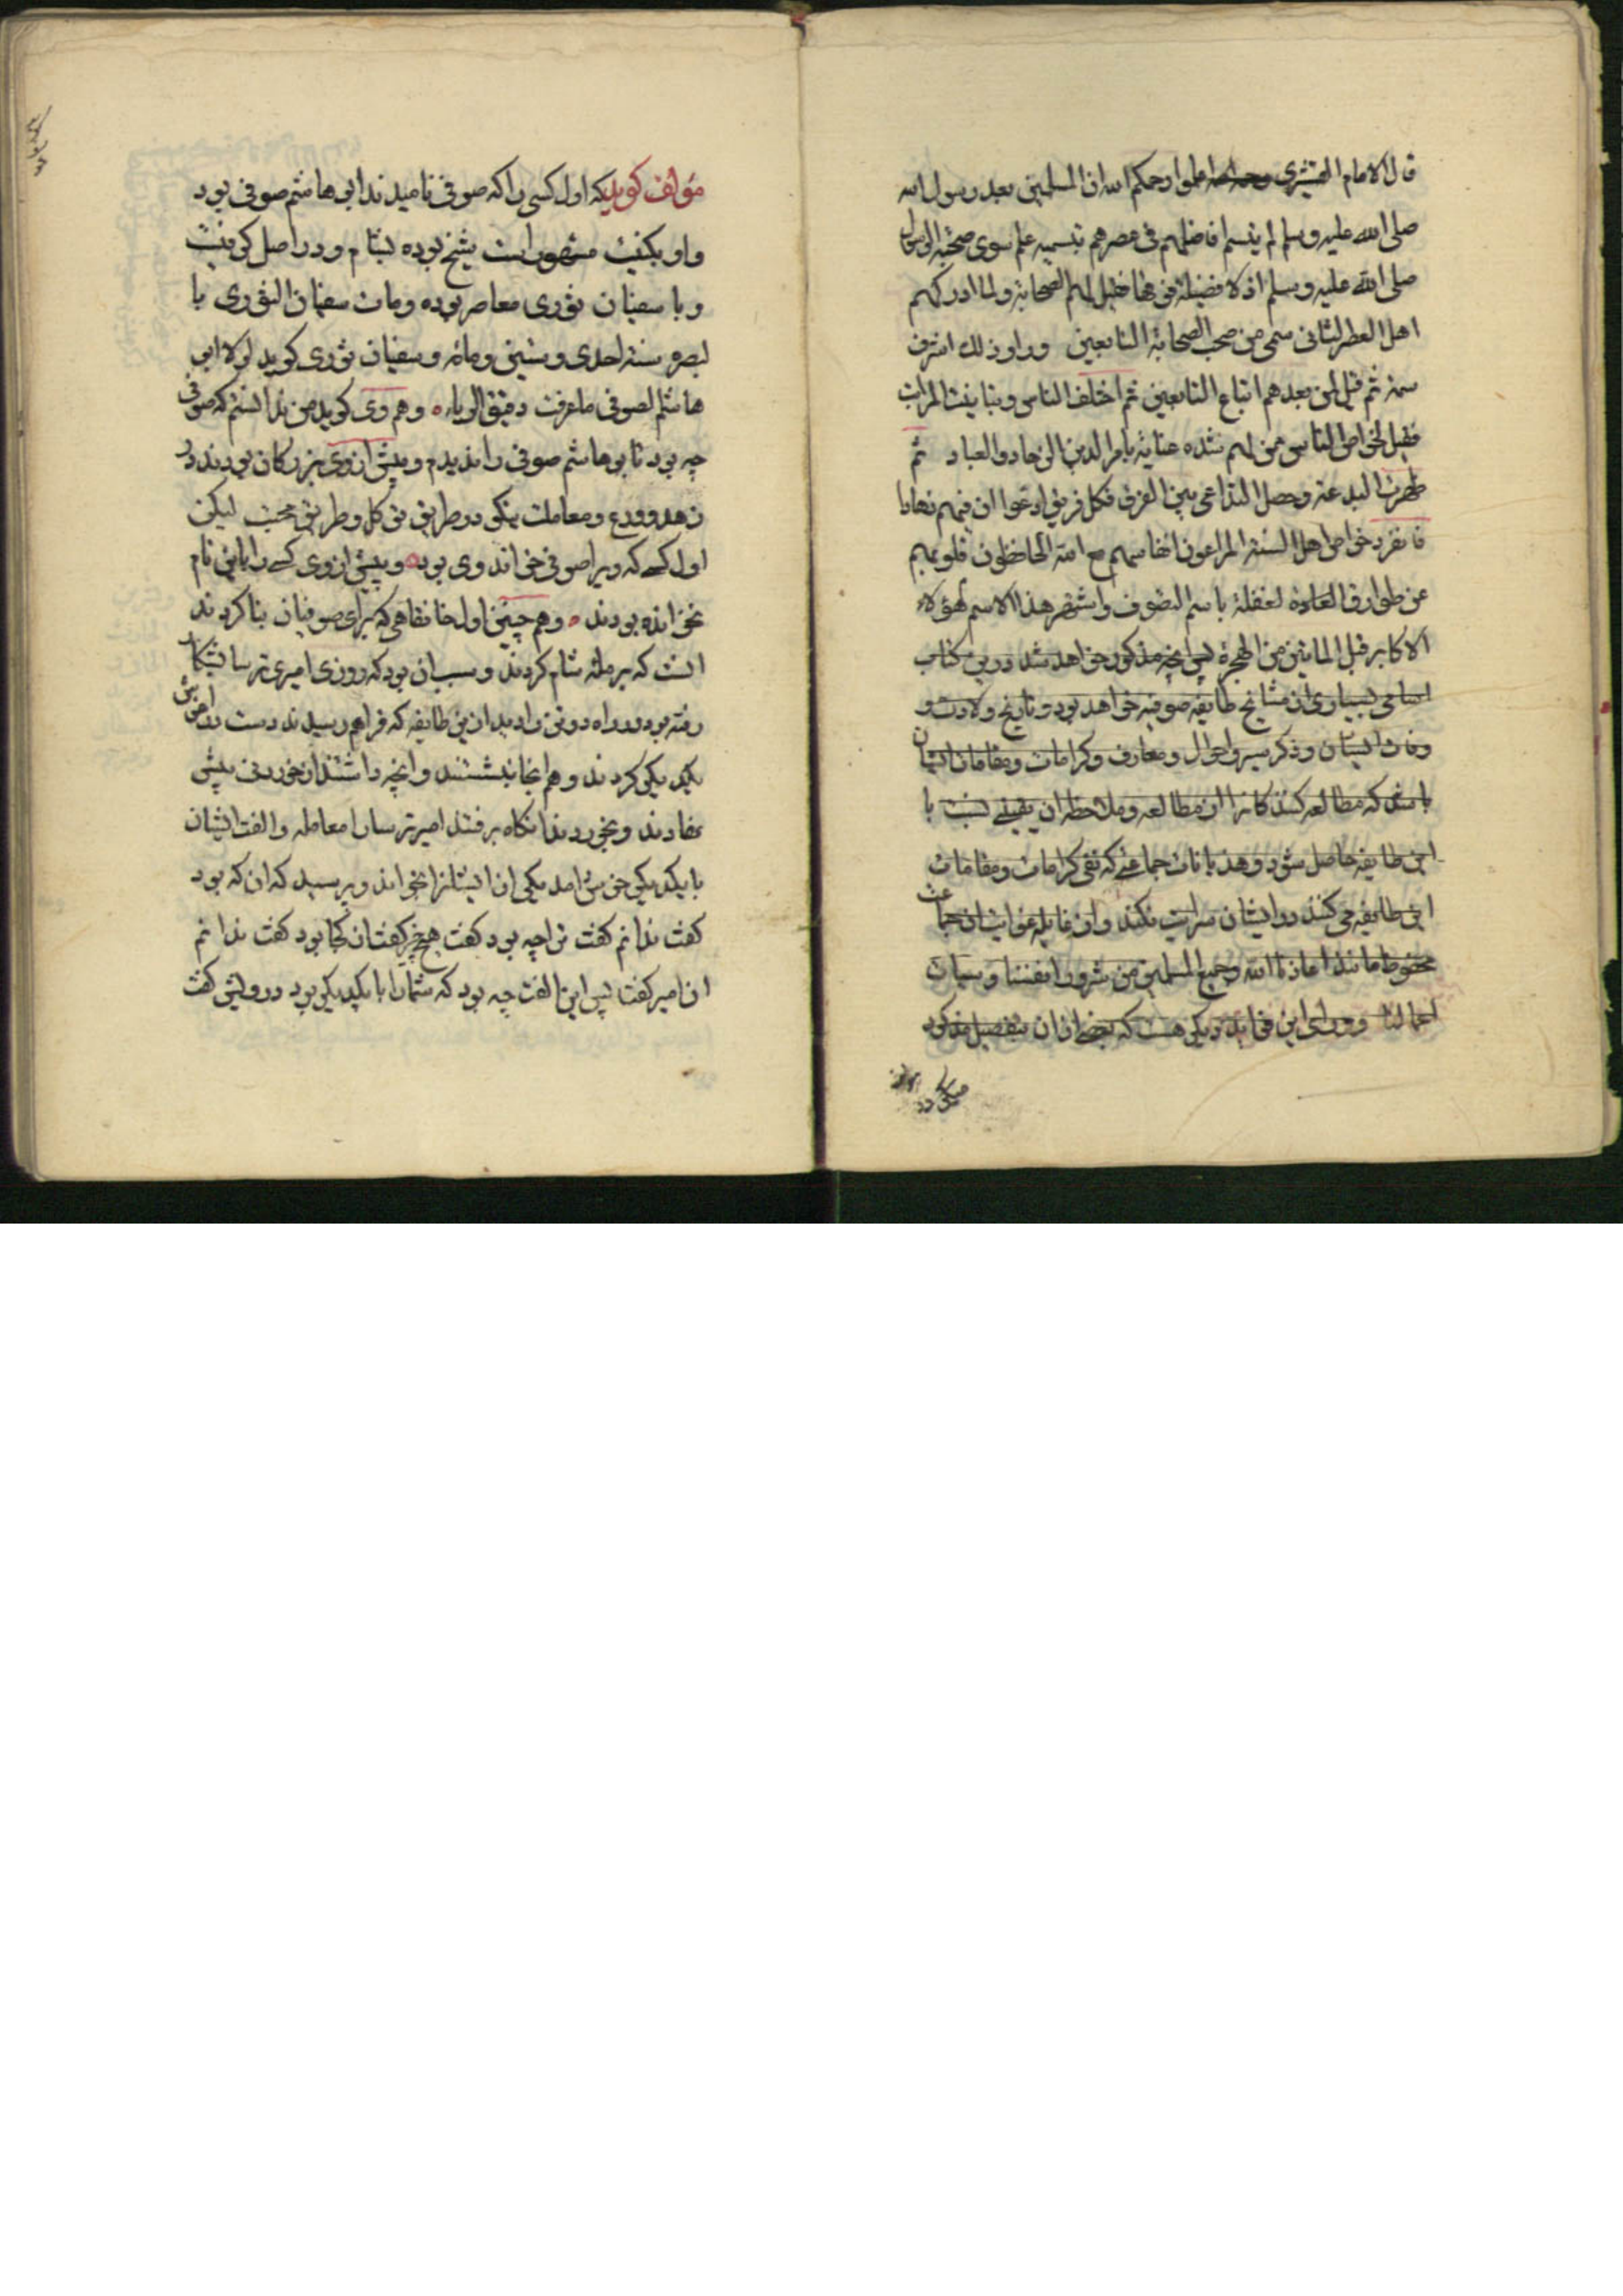 قال الامام القشیری رحمه الله اعلموا رحمکم الله ان المسلمین بعد رسول الله
صلی الله علیه وسلم لم یتسم افاضلهم فی عصرهم بتسمیه علم سوی صحبة الرسول
صلی الله علیه وسلم اذ لا فضیلة فوقها فقیل لهم الصحابة ولما ادرکهم
اهل العصر الثانی سمی من صحب الصحابة التابعین وراوا ذلک اشرف
سمة ثم قیل لمن بعدهم اتباع التابعین ثم اختلف الناس وتباینت المراتب
فقیل لخواص الناس ممن لهم شده عنایة بامر الدین الزهاد والعباد ثم
ظهرت البدعة وحصل التداعی بین الفرق فکل فریق ادعوا ان فیهم زهادا
فانفرد خواص اهل السنة المراعون انفاسهم مع الله الحافظون قلوبهم
عن طوارق الغفلة باسم التصوف واشتهر هذا الاسم لهؤلاء
الاکابر قبل المایتین من الهجرة پس آنچه مذکور خواهد شد درین کتاب
اسامی بسیاری از مشایخ طایفه صوفیه خواهد بود و تاریخ ولادت و
وفات ایشان و ذکر سیر و احوال و معارف و کرامات و مقامات ایشان
باشد که مطالعه کنندکانرا از مطالعه و ملاحظه ان یقینی نسبت با
این طایفه حاصل شود و هذیانات جماعتی که نفی کرامات و مقامات
این طایفه می کنند در ایشان سرایت نکند و از غایله غوایت ان جماعت
محفوظ مانند اعاذنا الله وجمیع المسلمین من شرور انفسنا وسیئات
اعمالنا و ورای این فواید دیکر هست که بعضی از ان بتفصیل مذکور
میکردد
مؤلف کوید که اول کسی را که صوفی نامیدند ابی هاشم صوفی بود
واو بکنیت مشهور است شیخ بوده بشام و در اصل کوفیست
و با سفیان ثوری معاصر بوده ومات سفیان الثوری با
لبصره سنة احدی وستین ومائه و سفیان ثوری کوید لولا ابی
هاشم الصوفی ما عرفت دقیق الریاء و هم وی کوید من ندانستم که صوفی
چه بود تا بوهاشم صوفی را ندیدم و پیش از وی بزرکان بودند در
زهد و ورع و معاملت نیکو در طریق توکل و طریق محبت لیکن
اول کسی که ویرا صوفی خواندند وی بود و پیش از وی کسی را باین نام
نخوانده بودند و هم چنین اول خانقاهی که برای صوفیان بنا کردند
انست که برمله شام کردند و سبب ان بود که روزی امیری ترسا بشکار
رفته بود در راه دو تن را دید ازین طایفه که فراهم رسیدند دست در اغوش
یکدیکر کردند و هم انجا بنشستند و انچه داشتند از خوردنی پیش
نهادند و بخوردند انکاه برفتند امیر ترسا را معامله و الفت ایشان
با یکدیکر خوش امد یکی از ایشانرا بخواند و پرسید که ان که بود
کفت ندانم کفت ترا چه بود کفت هیچ چیز کفت از کجا بود کفت ندانم
ان امیر کفت پس این الفت چه بود که شما را با یکدیکر بود درویش کفت